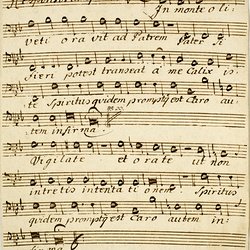 In monte oli
veti oravit ad Patrem Pater si
fieri potest transeat a me Calix is
te Spiritus quidem promptq est Caro au
tem infirma
Vigilate et orate ut non
intretis in tentationem Spiritus
quidem promptq est Caro autem in
firma